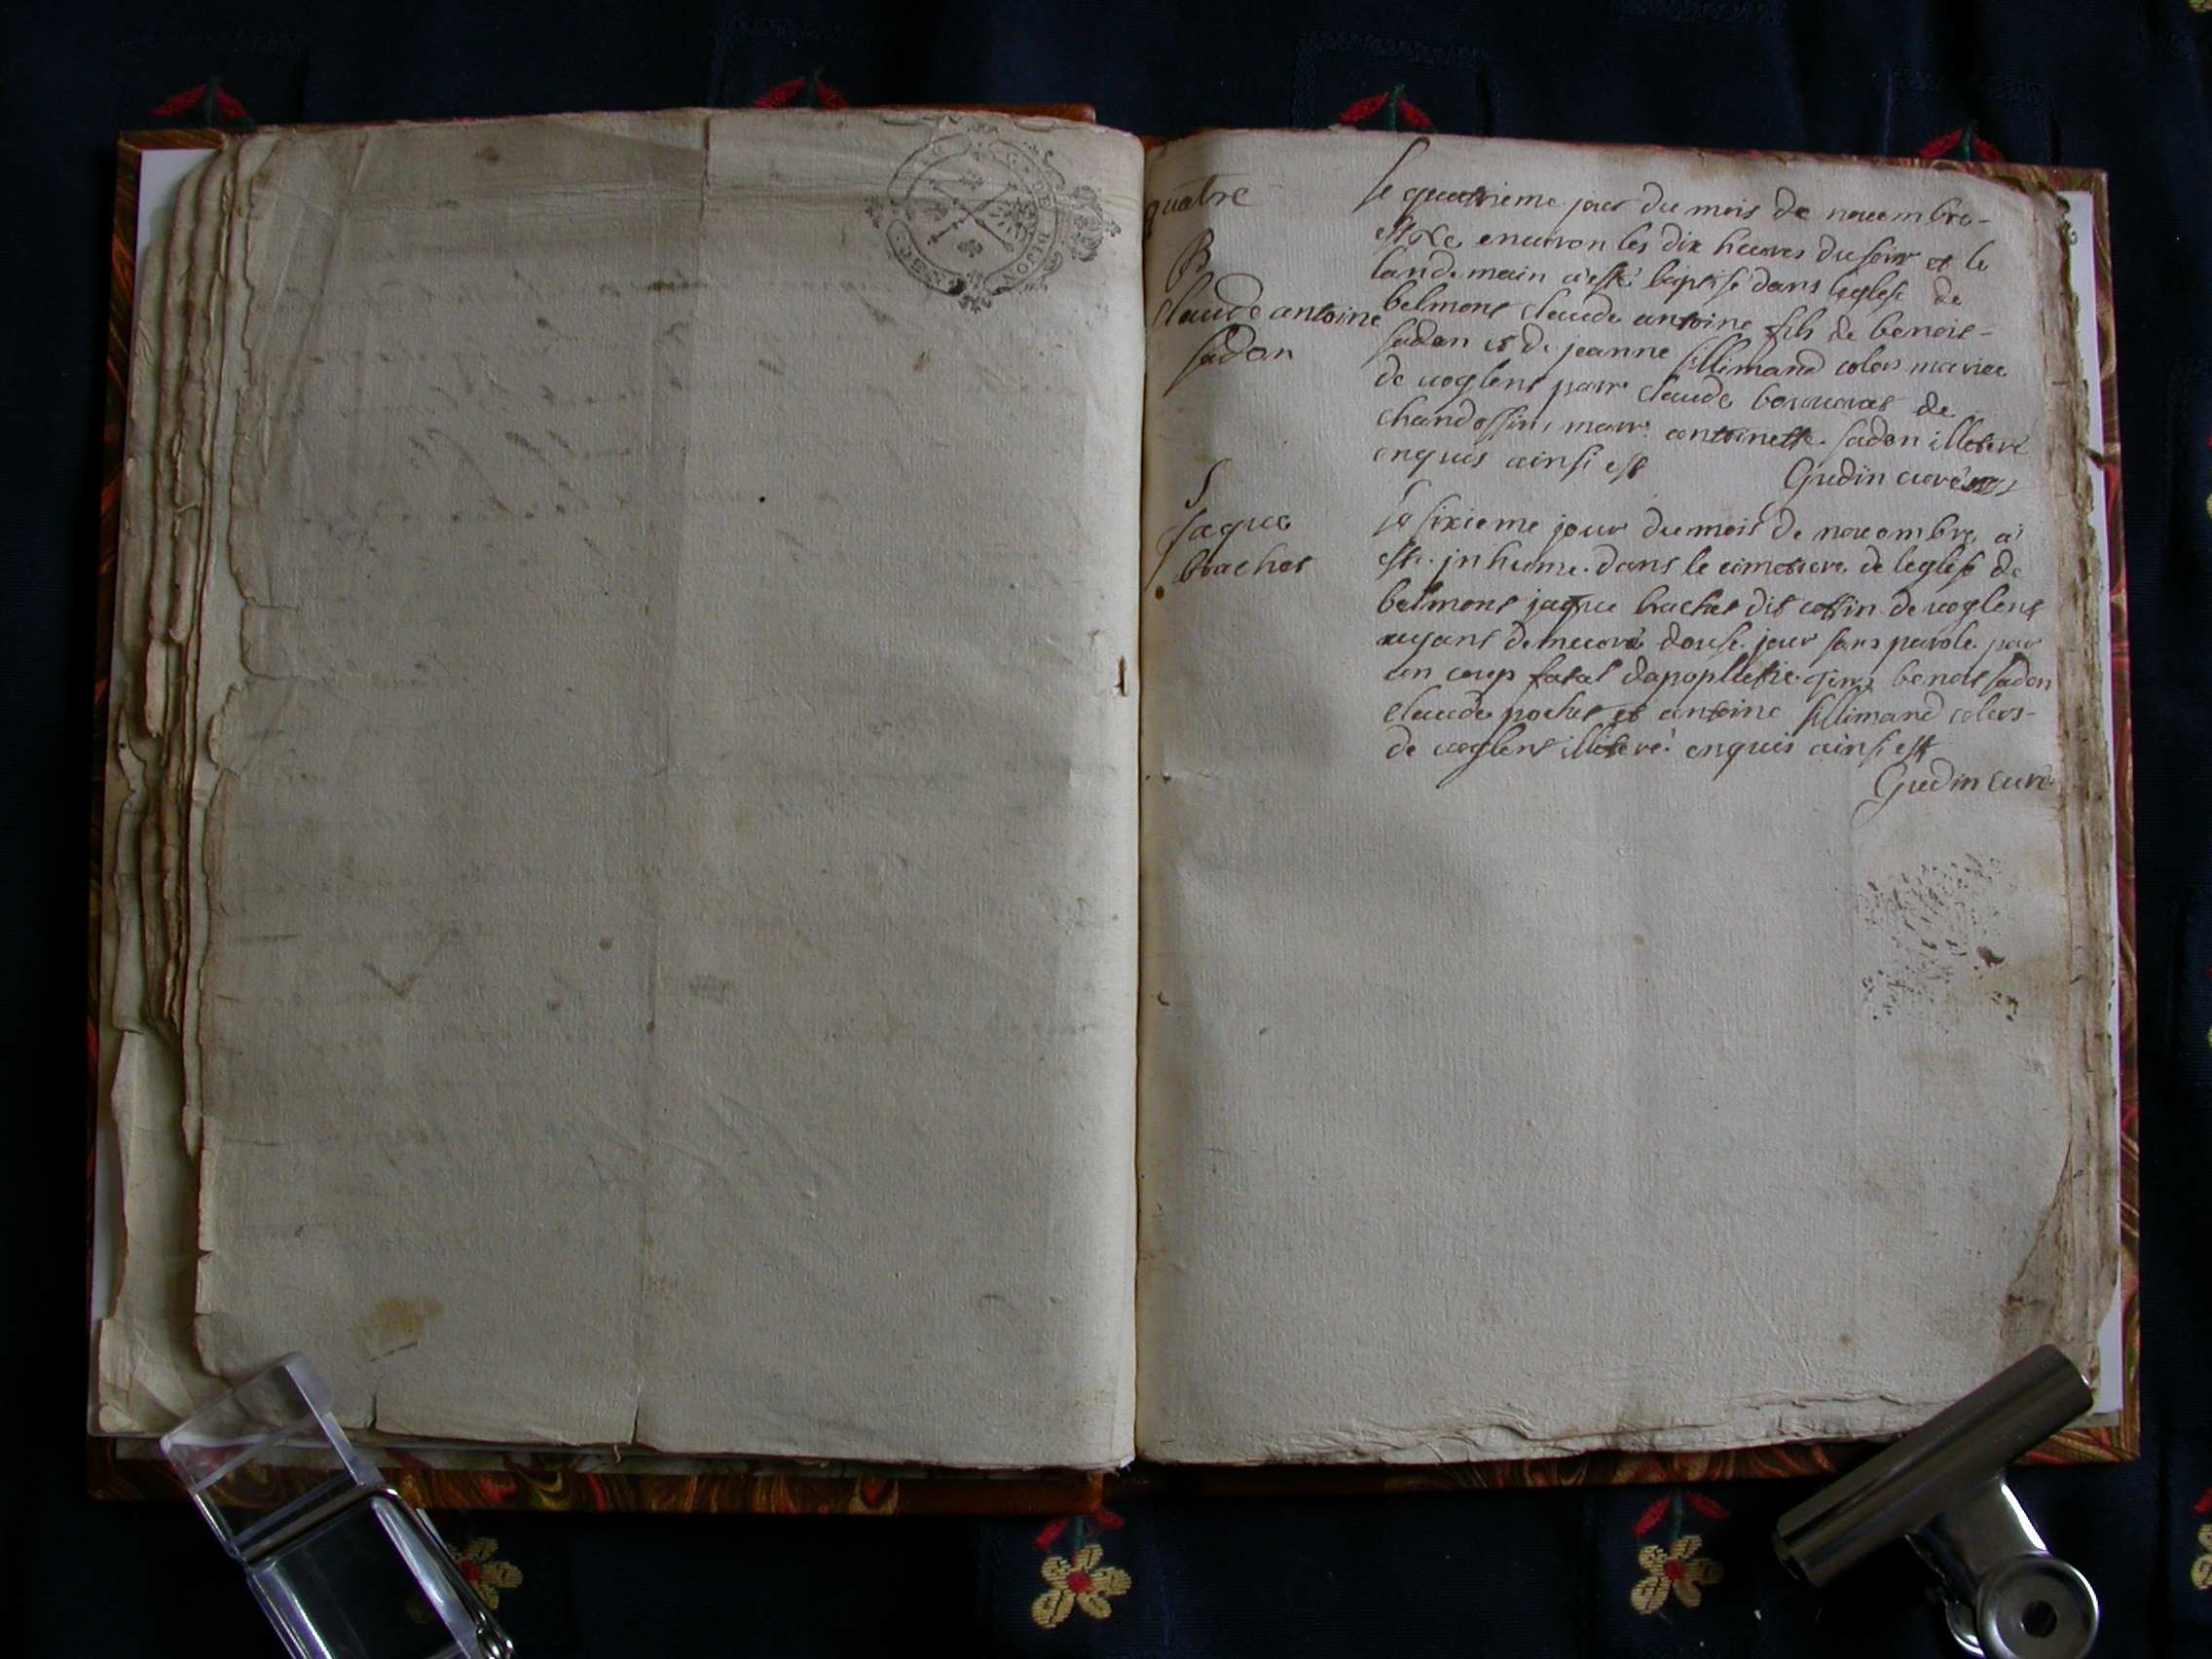 G. DE
DIJON
quatre
B
Claude antoine
sadon
le quatrieme jour du mois de nouembre
est Ne enuiron les dix heures du soir et le
landemain a esté baptisé dans leglise de
belmont claude antoine fils de benoit
sadon et de jeanne sillimand colon mariee
de uoglent parr claude de
marr antoinette sadon illeteré
enquis ainsi est
Guedin curé
S
jaque
brachet
le sixieme jour du mois de nouembre a
esté jnhumé dans le cimetiere de leglise de
belmont jaque brachet dit coffin de uoglent
ayant demeuré douse jour sans parole par
un coup fatal dapopletie benoit sadon
claude pochet et antoine sillimand colons
de uoglent illiteré enquis ainsi est
Guedin curé